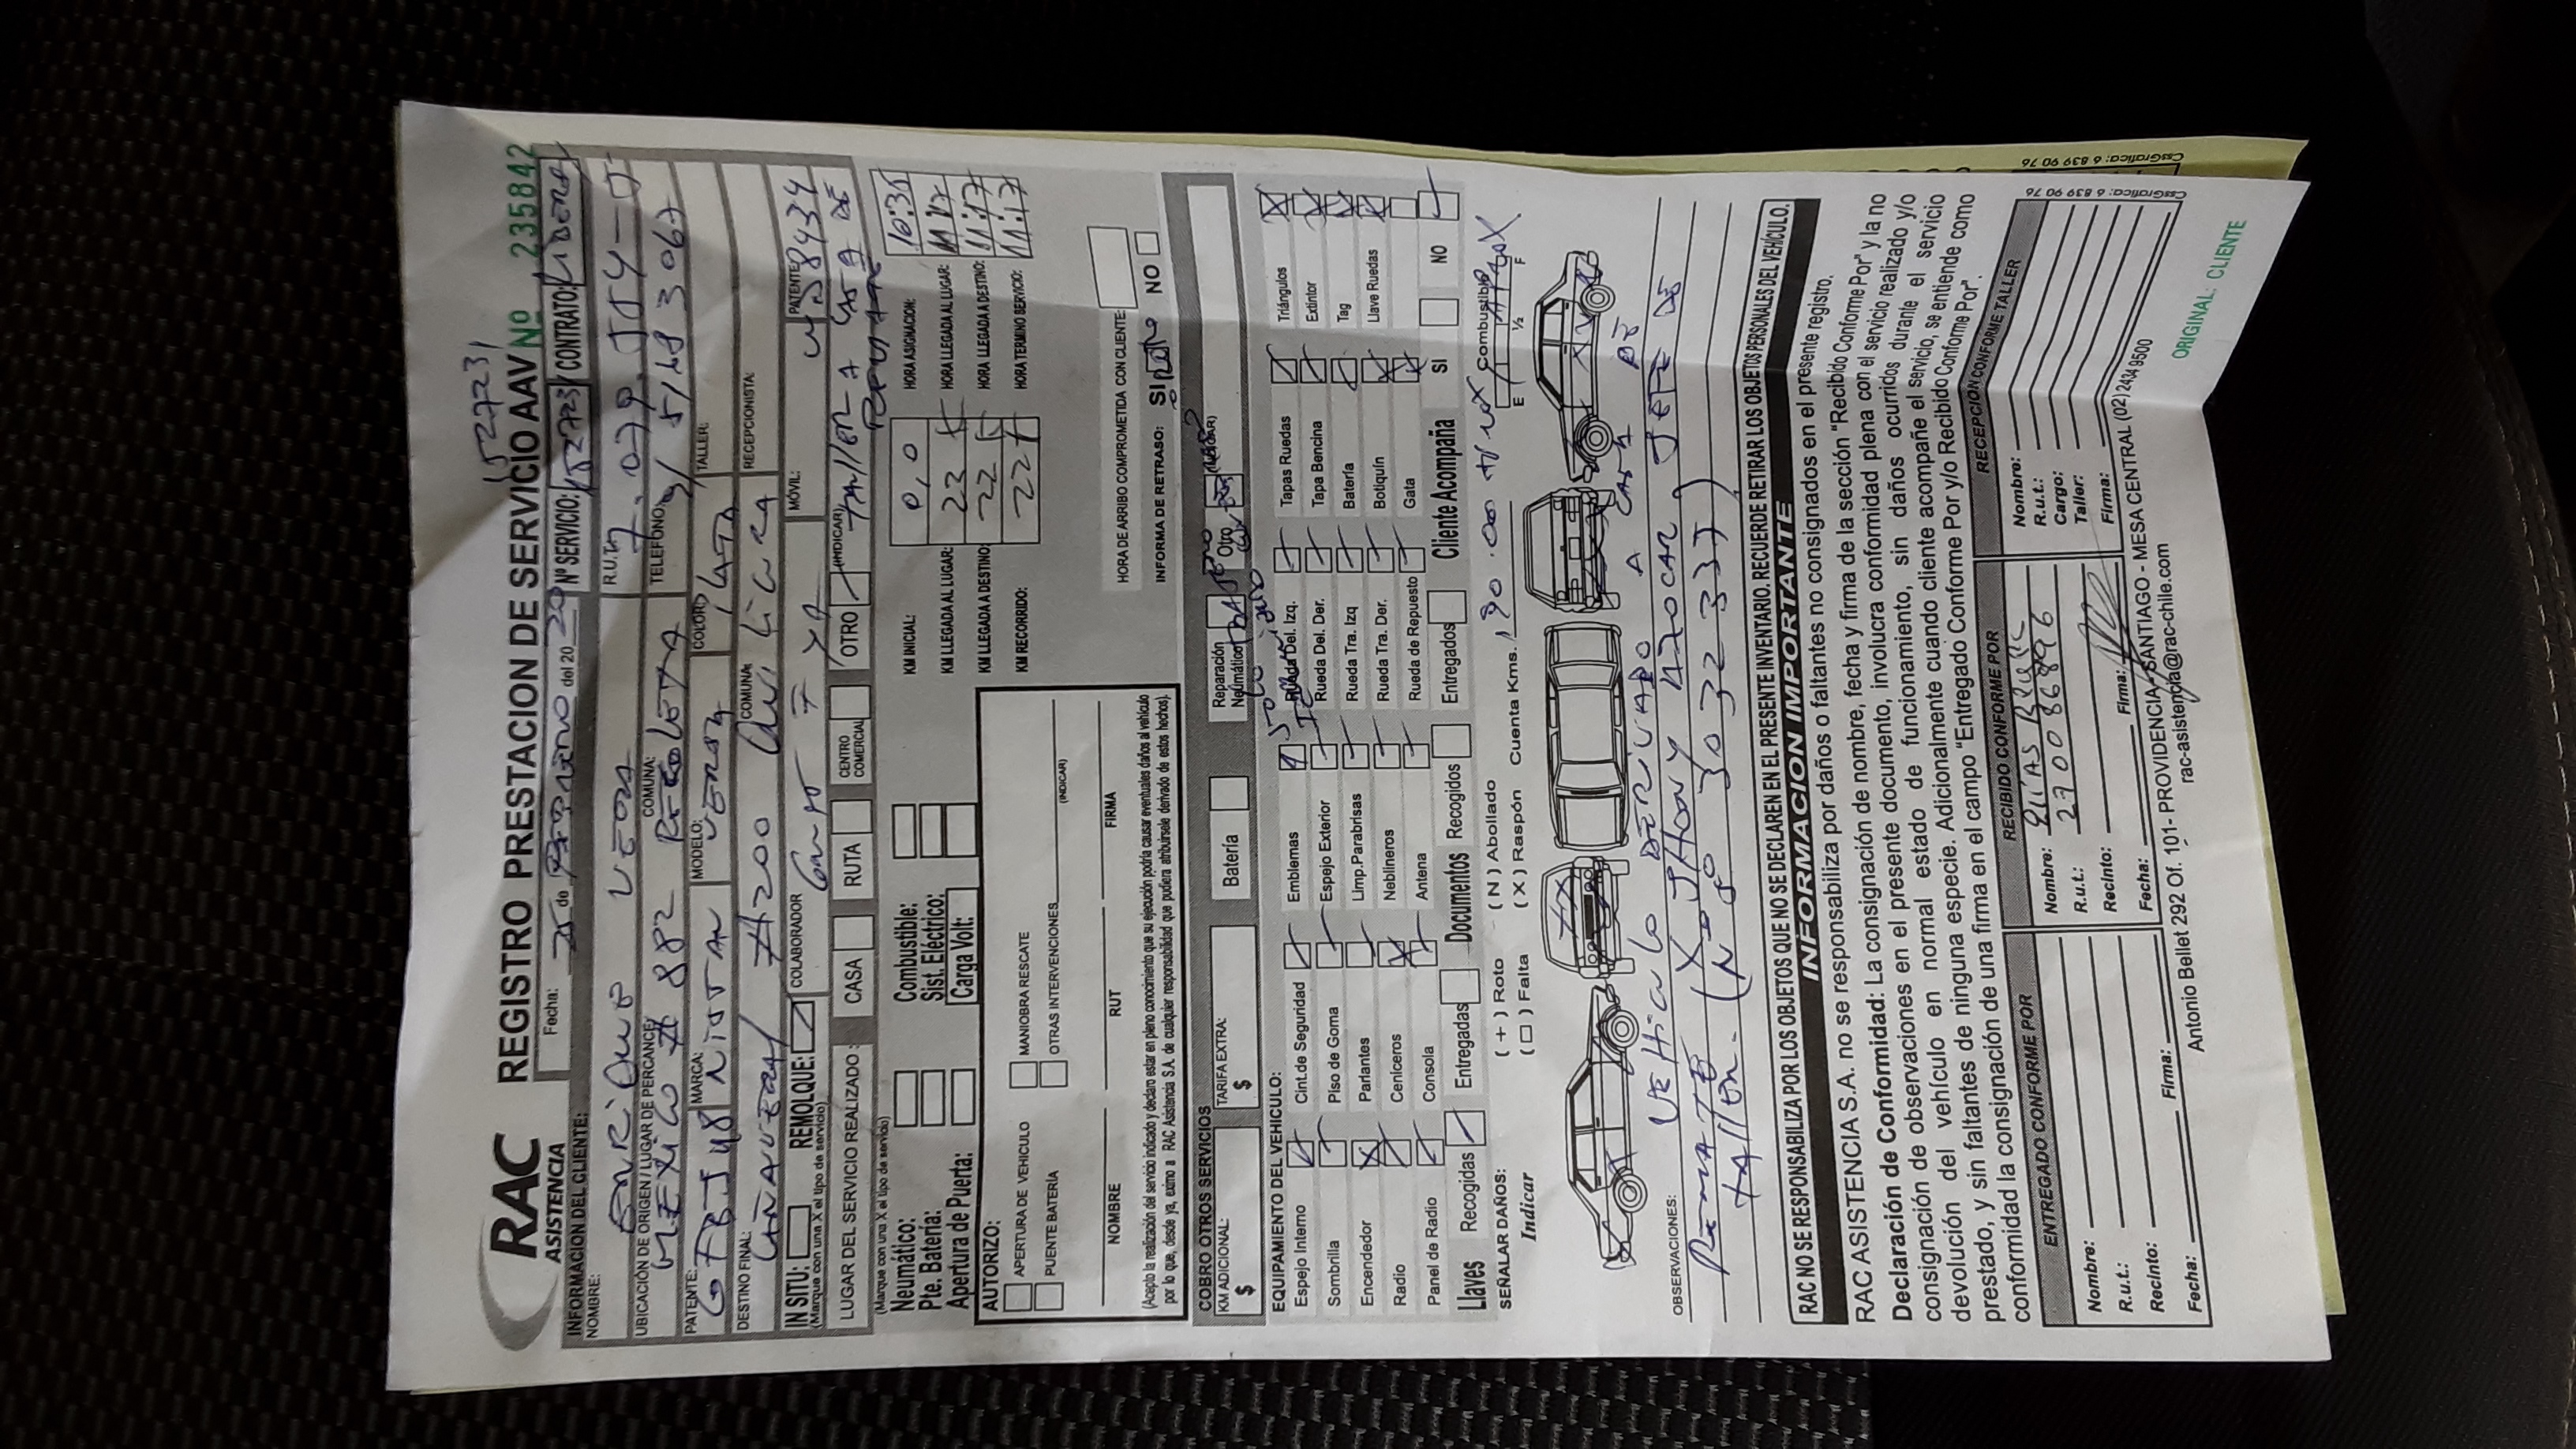 152723
RAC
ASISTENCIA
REGISTRO PRESTACION DE SERVICIO AAV Nº 235842
Fecha: 25 de del 20 20 Nº SERVICIO: 152723 CONTRATO: LIDERA
INFORMACION DEL CLIENTE:
NOMBRE: ENRIQUE VEGA R.U.T.:
UBICACIÓN DE ORIGEN / LUGAR DE PERCANCE: MEXICO # 882 COMUNA: RECOLETA TELEFONO:
PATENTE: GFBJ48 MARCA: NISSAN MODELO: VERSA COLOR: TALLER:
DESTINO FINAL: CAÑAVERAL # 200 COMUNA: QUILICURA RECEPCIONISTA:
IN SITU: REMOLQUE: COLABORADOR MÓVIL: PATENTE:
(Marque con una X el tipo de servicio)
LUGAR DEL SERVICIO REALIZADO: CASA RUTA CENTRO COMERCIAL OTRO (INDICAR) TALLER A CASA DE
(Marque con una X el tipo de servicio)
Neumático: Combustible: KM INICIAL: 0,0 HORA ASIGNACION: 10:35
Pte. Batería: Sist. Eléctrico: KM LLEGADA AL LUGAR: 22 HORA LLEGADA AL LUGAR: 11:17
Apertura de Puerta: Carga Volt: KM LLEGADA A DESTINO: 22 HORA LLEGADA A DESTINO: 11:17
KM RECORRIDO: 22 HORA TERMINO SERVICIO: 11:17
AUTORIZO:
APERTURA DE VEHICULO MANIOBRA RESCATE
PUENTE BATERÍA OTRAS INTERVENCIONES (INDICAR)
HORA DE ARRIBO COMPROMETIDA CON CLIENTE:
NOMBRE RUT FIRMA
INFORMA DE RETRASO: SI NO
(Acepto la realización del servicio indicado y declaro estar en pleno conocimiento que su ejecución podría causar eventuales daños al vehículo
por lo que, desde ya, eximo a RAC Asistencia S.A. de cualquier responsabilidad que pudiera atribuírsele derivado de estos hechos).
COBRO OTROS SERVICIOS
KM ADICIONAL: $ TARIFA EXTRA: $ Batería Reparación Neumático Otro
EQUIPAMIENTO DEL VEHICULO:
Espejo Interno Cint.de Seguridad Emblemas Rueda Del. Izq. Tapas Ruedas Triángulos
Sombrilla Piso de Goma Espejo Exterior Rueda Del. Der. Tapa Bencina Extintor
Encendedor Parlantes Limp.Parabrisas Rueda Tra. Izq Batería Tag
Radio Ceniceros Neblineros Rueda Tra. Der. Botiquín Llave Ruedas
Panel de Radio Consola Antena Rueda de Repuesto Gata
Llaves Recogidas Entregadas Documentos Recogidos Entregados Cliente Acompaña SI NO
SEÑALAR DAÑOS: ( + ) Roto ( N ) Abollado
Indicar ( □ ) Falta ( X ) Raspón Cuenta Kms. 190.000 Combustible E ½ F
OBSERVACIONES: VEHICULO DERIVADO A CASA DE
REMATE JHONY AZOCAR JEFE DE
TALLER.
RAC NO SE RESPONSABILIZA POR LOS OBJETOS QUE NO SE DECLAREN EN EL PRESENTE INVENTARIO. RECUERDE RETIRAR LOS OBJETOS PERSONALES DEL VEHÍCULO.
INFORMACION IMPORTANTE
RAC ASISTENCIA S.A. no se responsabiliza por daños o faltantes no consignados en el presente registro.
Declaración de Conformidad: La consignación de nombre, fecha y firma de la sección "Recibido Conforme Por" y la no
consignación de observaciones en el presente documento, involucra conformidad plena con el servicio realizado y/o
devolución del vehículo en normal estado de funcionamiento, sin daños ocurridos durante el servicio
prestado, y sin faltantes de ninguna especie. Adicionalmente cuando cliente acompañe el servicio, se entiende como
conformidad la consignación de una firma en el campo "Entregado Conforme Por y/o Recibido Conforme Por".
ENTREGADO CONFORME POR
Nombre:
R.u.t.:
Recinto:
Fecha: Firma:
RECIBIDO CONFORME POR
Nombre:
R.u.t.: 27008689-6
Recinto:
Fecha: Firma:
RECEPCION CONFORME TALLER
Nombre:
R.u.t.:
Cargo:
Taller:
Firma:
Antonio Bellet 292 Of. 101- PROVIDENCIA-SANTIAGO - MESA CENTRAL (02) 2434 9500
rac-asistencia@rac-chile.com
ORIGINAL: CLIENTE
CssGrafica: 6 839 90 76
CssGrafica: 6 839 90 76